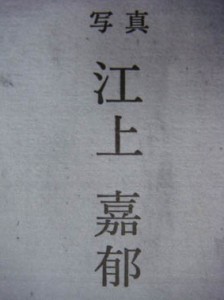 写真
江上 嘉郁